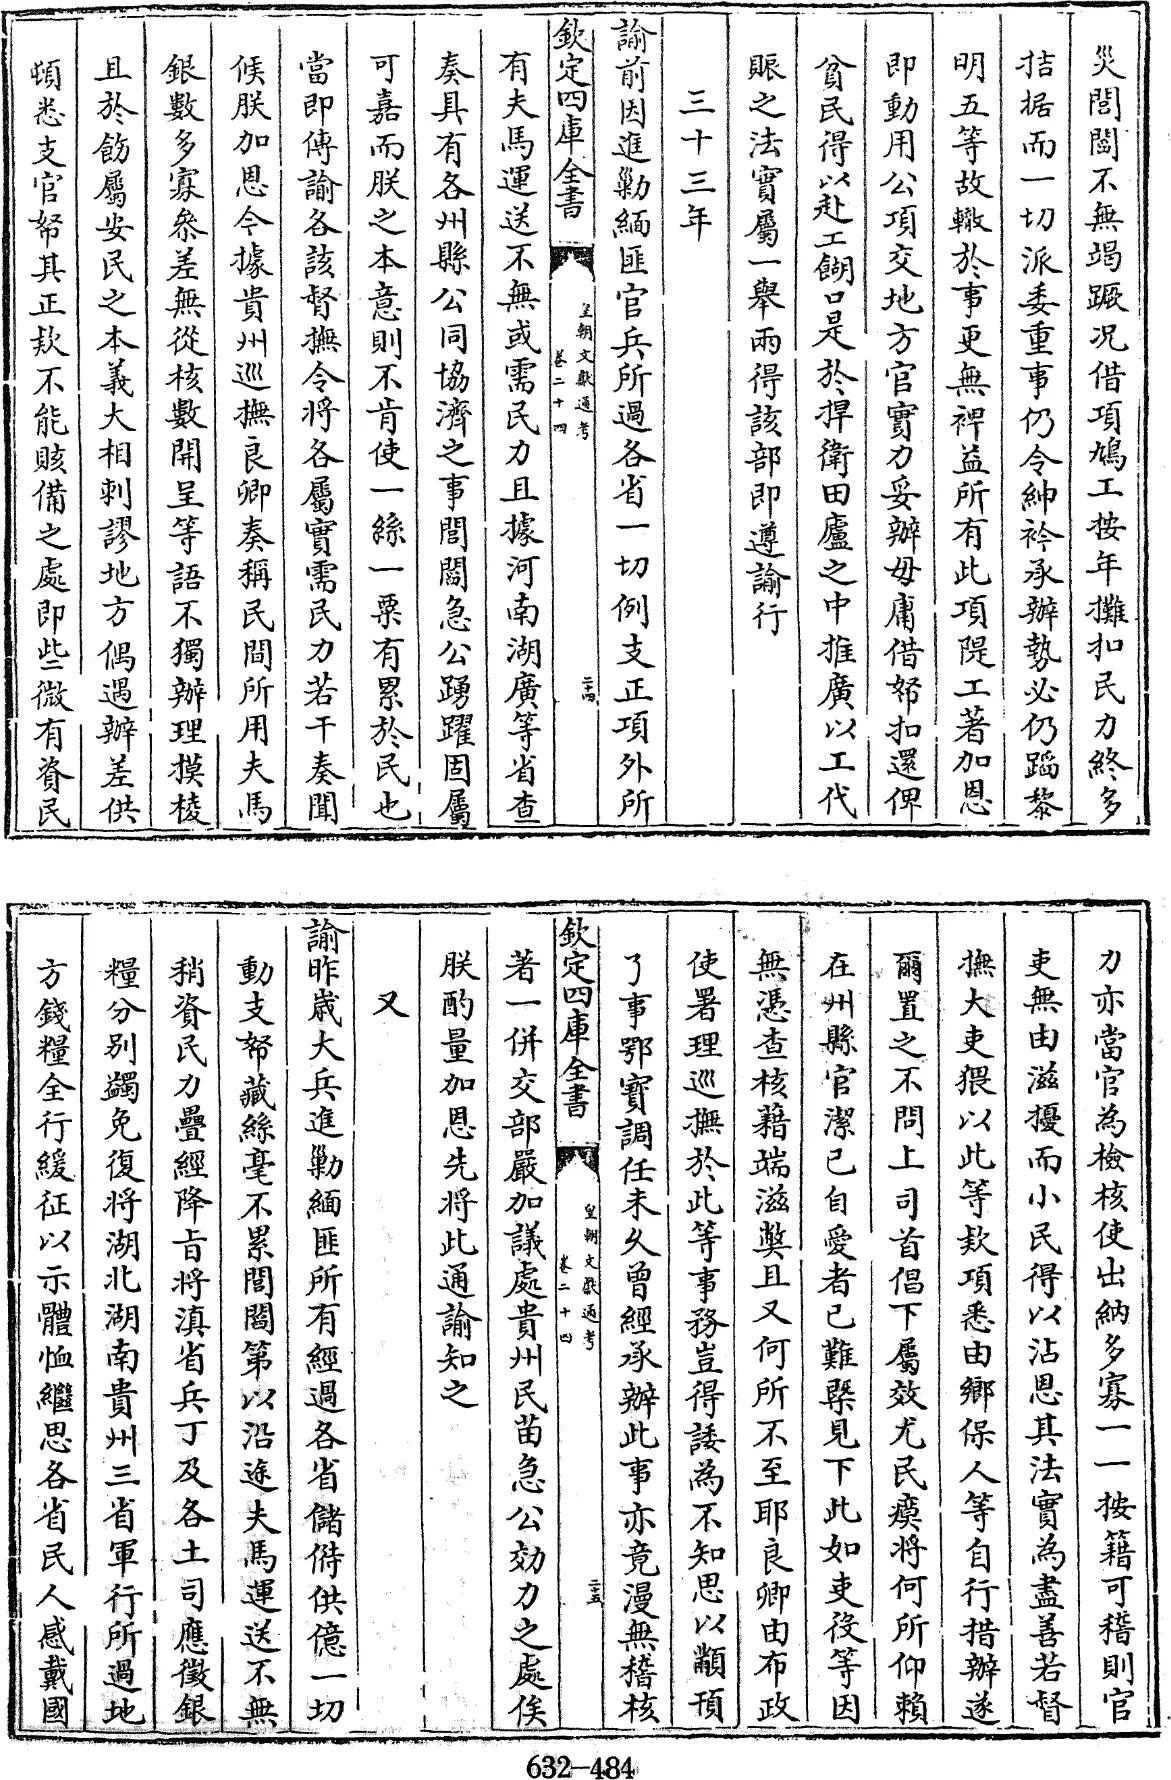 災閭閻不無竭蹶况借項鳩工按年攤扣民力終多
拮据而一切派委重事仍令紳衿承辦勢必仍蹈黎
明五等故轍於事更無裨益所有此項隄工著加恩
即動用公項交地方官實力妥辦毋庸借帑扣還俾
貧民得以赴工餬口是於捍衛田廬之中推廣以工代
賑之法實屬一舉兩得該部即遵諭行
三十三年
諭前因進勦緬匪官兵所過各省一切例支正項外所
欽定四庫全書
皇朝文獻通考
卷二十四
二十四
有夫馬運送不無或需民力且據河南湖廣等省查
奏具有各州縣公同協濟之事閭閻急公踴躍固屬
可嘉而朕之本意則不肯使一絲一粟有累於民也
當即傳諭各該督撫令將各屬實需民力若干奏聞
候朕加恩今據貴州巡撫良卿奏稱民間所用夫馬
銀數多寡叅差無從核數開呈等語不獨辦理摸稜
且於飭屬安民之本義大相刺謬地方偶遇辦差供
頓悉支官帑其正款不能賅備之處即些微有資民
力亦當官為檢核使出納多寡一一按籍可稽則官
吏無由滋擾而小民得以沾恩其法實為盡善若督
撫大吏猥以此等款項悉由鄉保人等自行措辦遂
爾置之不問上司首倡下屬效尤民瘼將何所仰賴
在州縣官潔己自愛者已難槩見下此如吏役等因
無憑查核藉端滋獘且又何所不至耶良卿由布政
使署理巡撫於此等事務豈得諉為不知思以顢頇
了事鄂寶調任未久曾經承辦此事亦竟漫無稽核
欽定四庫全書
皇朝文獻通考
卷二十四
二十五
著一併交部嚴加議處貴州民苗急公効力之處俟
朕酌量加恩先將此通諭知之
又
諭昨歲大兵進勦緬匪所有經過各省儲偫供億一切
動支帑藏絲毫不累閭閻第以沿途夫馬運送不無
稍資民力疊經降旨將滇省兵丁及各土司應徵銀
糧分別蠲免復將湖北湖南貴州三省軍行所過地
方錢糧全行緩征以示體恤繼思各省民人感戴國
632-484